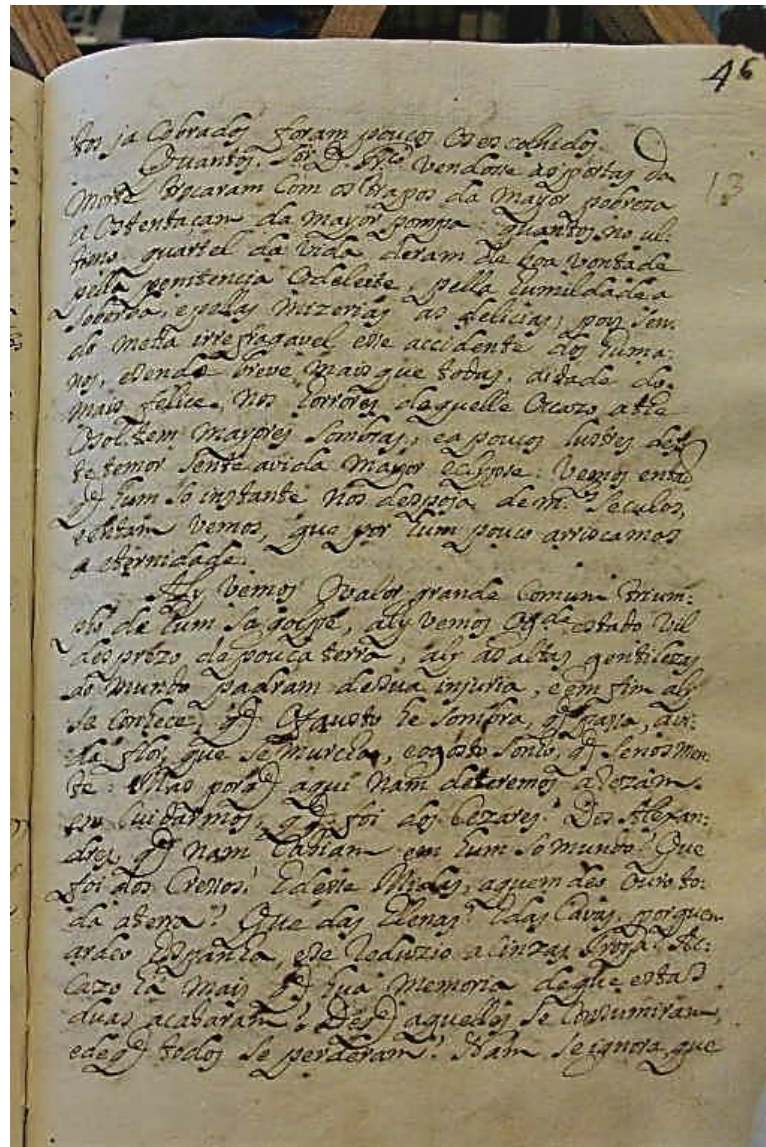 46
13
tos ja Cobrados foram poucos os escolhidos.
Quantos, Sor. D. vendosse as portas da
Morte trocaram Com os trapos da Mayor pobreza
a Ostentaçam da mayor pompa: quantos no ul-
timo quartel da vida deram de boa vontade
pella penitencia O deleite, pella humildade a
Soberba, e pellas Mizerias as delicias; poys sen-
do meta irrefragavel esse accidente dos huma-
nos, e sendo breve mais que todas, a idade do
mais felice, Nos horrores daquelle Ocazo athe
O sol tem Mayores Sombras, e a poucos lustres des-
te temor Sente a vida Mayor eclypse: Vemos entam
q hum so instante Nos despoja de m.tos Seculos,
e entam Vemos, que por hum pouco arriscamos
a eternidade.
Aly Vemos O valor grande Comum trium-
pho de hum so golpe, aly vemos O estado Vil
desprezo de pouca terra, aly as altas gentilezas
do Mundo padram de sua injuria, e em fim aly
se conhece, q O fausto he Sombra, q passa, a vi-
da flor, que se murcha, e o gosto Sonho, q Se nos men-
te: Mas porq aqui Nam deteremos a rezam
em Cuidarmos, q foi dos Cezares? Dos Alexan-
dres q nam Cabiam em hum So mundo? Que
foi dos Cressos? E desse Midas, a quem deo Ouro to-
da a terra? Que das Elenas? E das Cavas, por quem
ardeo Espanha, e se reduzio a Cinzas Troya? Ac-
cazo ha Mais q hua Memoria de que estas
duas acabaram? De q aquelles Se Consumiram,
e de q todos Se perderam? Nam Se ignora, que